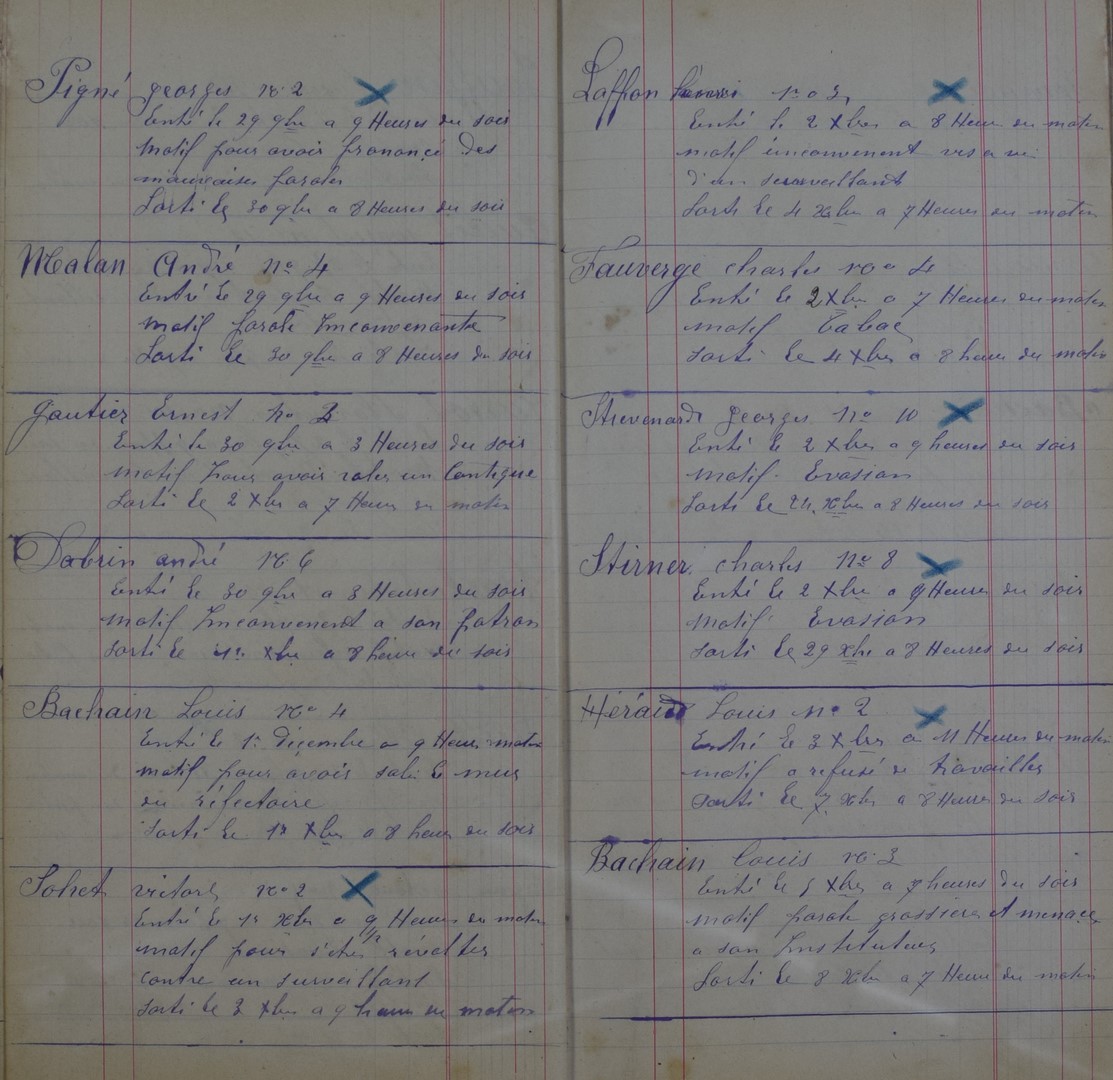 Pigné georges no 2
Entré le 29 9bre a 9 Heures du soir
Motif pour avoir prononçé des
mauvaises paroles
Sorti le 30 9bre a 8 Heures du soir
Malan André no 4
Entré le 29 9bre a 9 Heures du soir
motif parole Inconvenante
Sorti le 30 9bre a 8 Heures du soir
gautier Ernest no 2
Entré le 30 9bre a 3 Heures du soir
motif Pour avoir voler un Cantique
Sorti le 2 Xbre a 7 Heures du matin
Dabrin andré no 6
Entré le 30 9bre a 3 Heures du soir
motif Inconvenent a son patron
Sorti le 1er Xbre a 8 heure du soir
Bachain Louis no 4
Entré le 1er décembre a 9 Heures matin
motif pour avoir sali le mur
du réfectoire
Sorti le 1er Xbre a 8 heure du soir
Sohet victor no 2
Entré le 1er Xbre a 9 1/2 Heures du matin
motif pour s'etre révolter
contre un surveillant
Sorti le 3 Xbre a 9 heure du matin
Laffon no 3
Entré le 2 Xbre a 8 Heure du matin
motif inconvenent vis a vi
d'un surveillant
Sorti le 4 Xbre a 7 Heures du matin
Fauverge charles no 4
Entré le 2 Xbre a 7 Heures du matin
motif Tabac
Sorti le 4 Xbre a 8 heure du matin
Strevenard georges no 10
Entré le 2 Xbre a 9 heures du soir
Motif. Evasion
Sorti le 24 Xbre a 8 Heures du soir
Stirner charles no 8
Entré le 2 Xbre a 9 Heures du soir
Motif. Evasion
Sorti le 29 Xbre a 8 Heures du soir
Héraud Louis no 2
Entré le 3 Xbre a 11 Heures du matin
motif a refusé de travailler
Sorti le 7 Xbre a 8 Heures du soir
Bachain Louis no 3
Entré le 5 Xbre a heures du soir
motif parole grossière et menace
a son Instituteur
Sorti le 8 Xbre a 7 Heure du matin